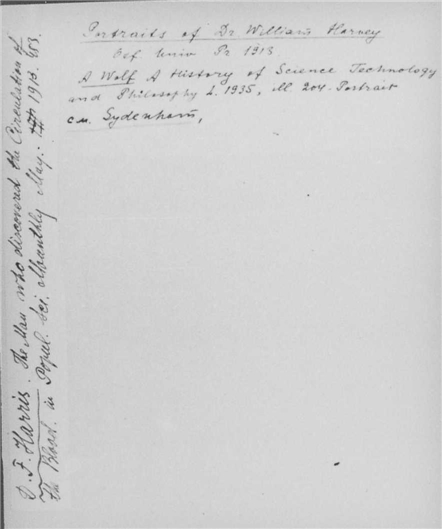 Portraits of Dr. William Harvey
Oxf Univ Pr 1913
A Wolf A History of Science Technology
and Philosophy L. 1935, ill 204. Portrait
Sydenham,
D. F. Harris. The Man who discovered the Circulation of
the Blood. in Popul. Sci. Monthly May. 1913. 453.